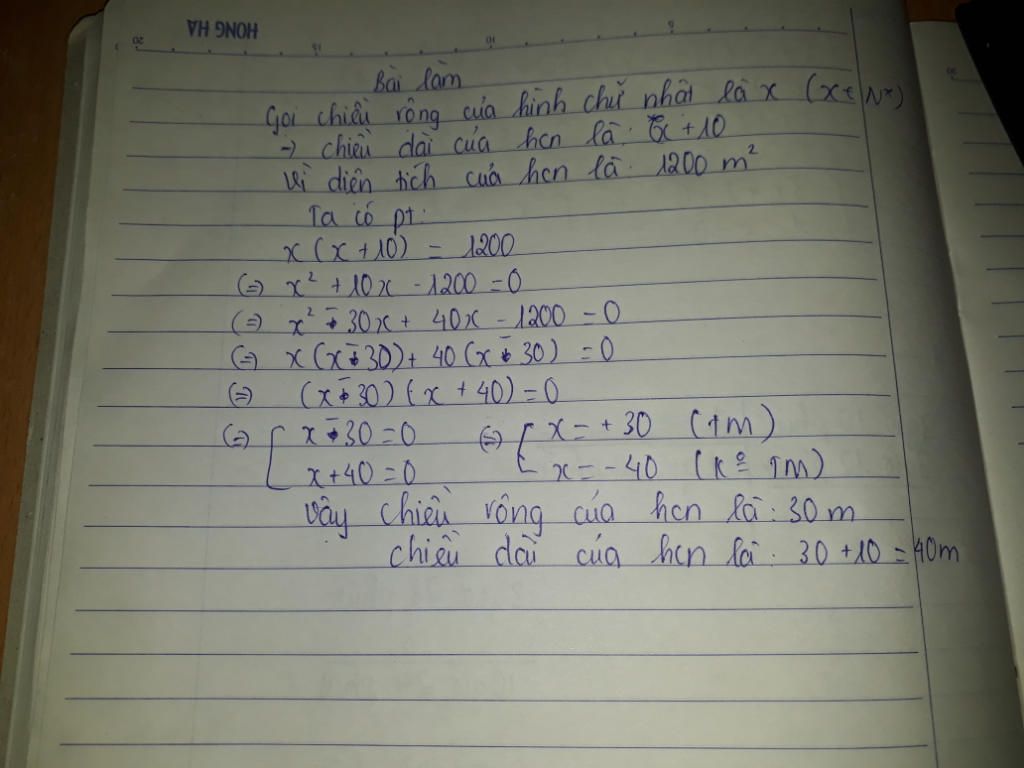 HONG HA
20 15 10 5
Bài làm
Gọi chiều rộng của hình chữ nhật là x (x ∈ N*)
→ chiều dài của hcn là: x + 10
Vì diện tích của hcn là: 1200 m²
Ta có pt:
x (x + 10) = 1200
(=) x² + 10x - 1200 = 0
(=) x² - 30x + 40x - 1200 = 0
(=) x (x - 30) + 40 (x - 30) = 0
(=) (x - 30) (x + 40) = 0
(=) [ x - 30 = 0 (=) [ x = + 30 (tm)
x + 40 = 0 x = - 40 (kº tm)
Vậy chiều rộng của hcn là: 30 m
chiều dài của hcn là: 30 + 10 = 40m